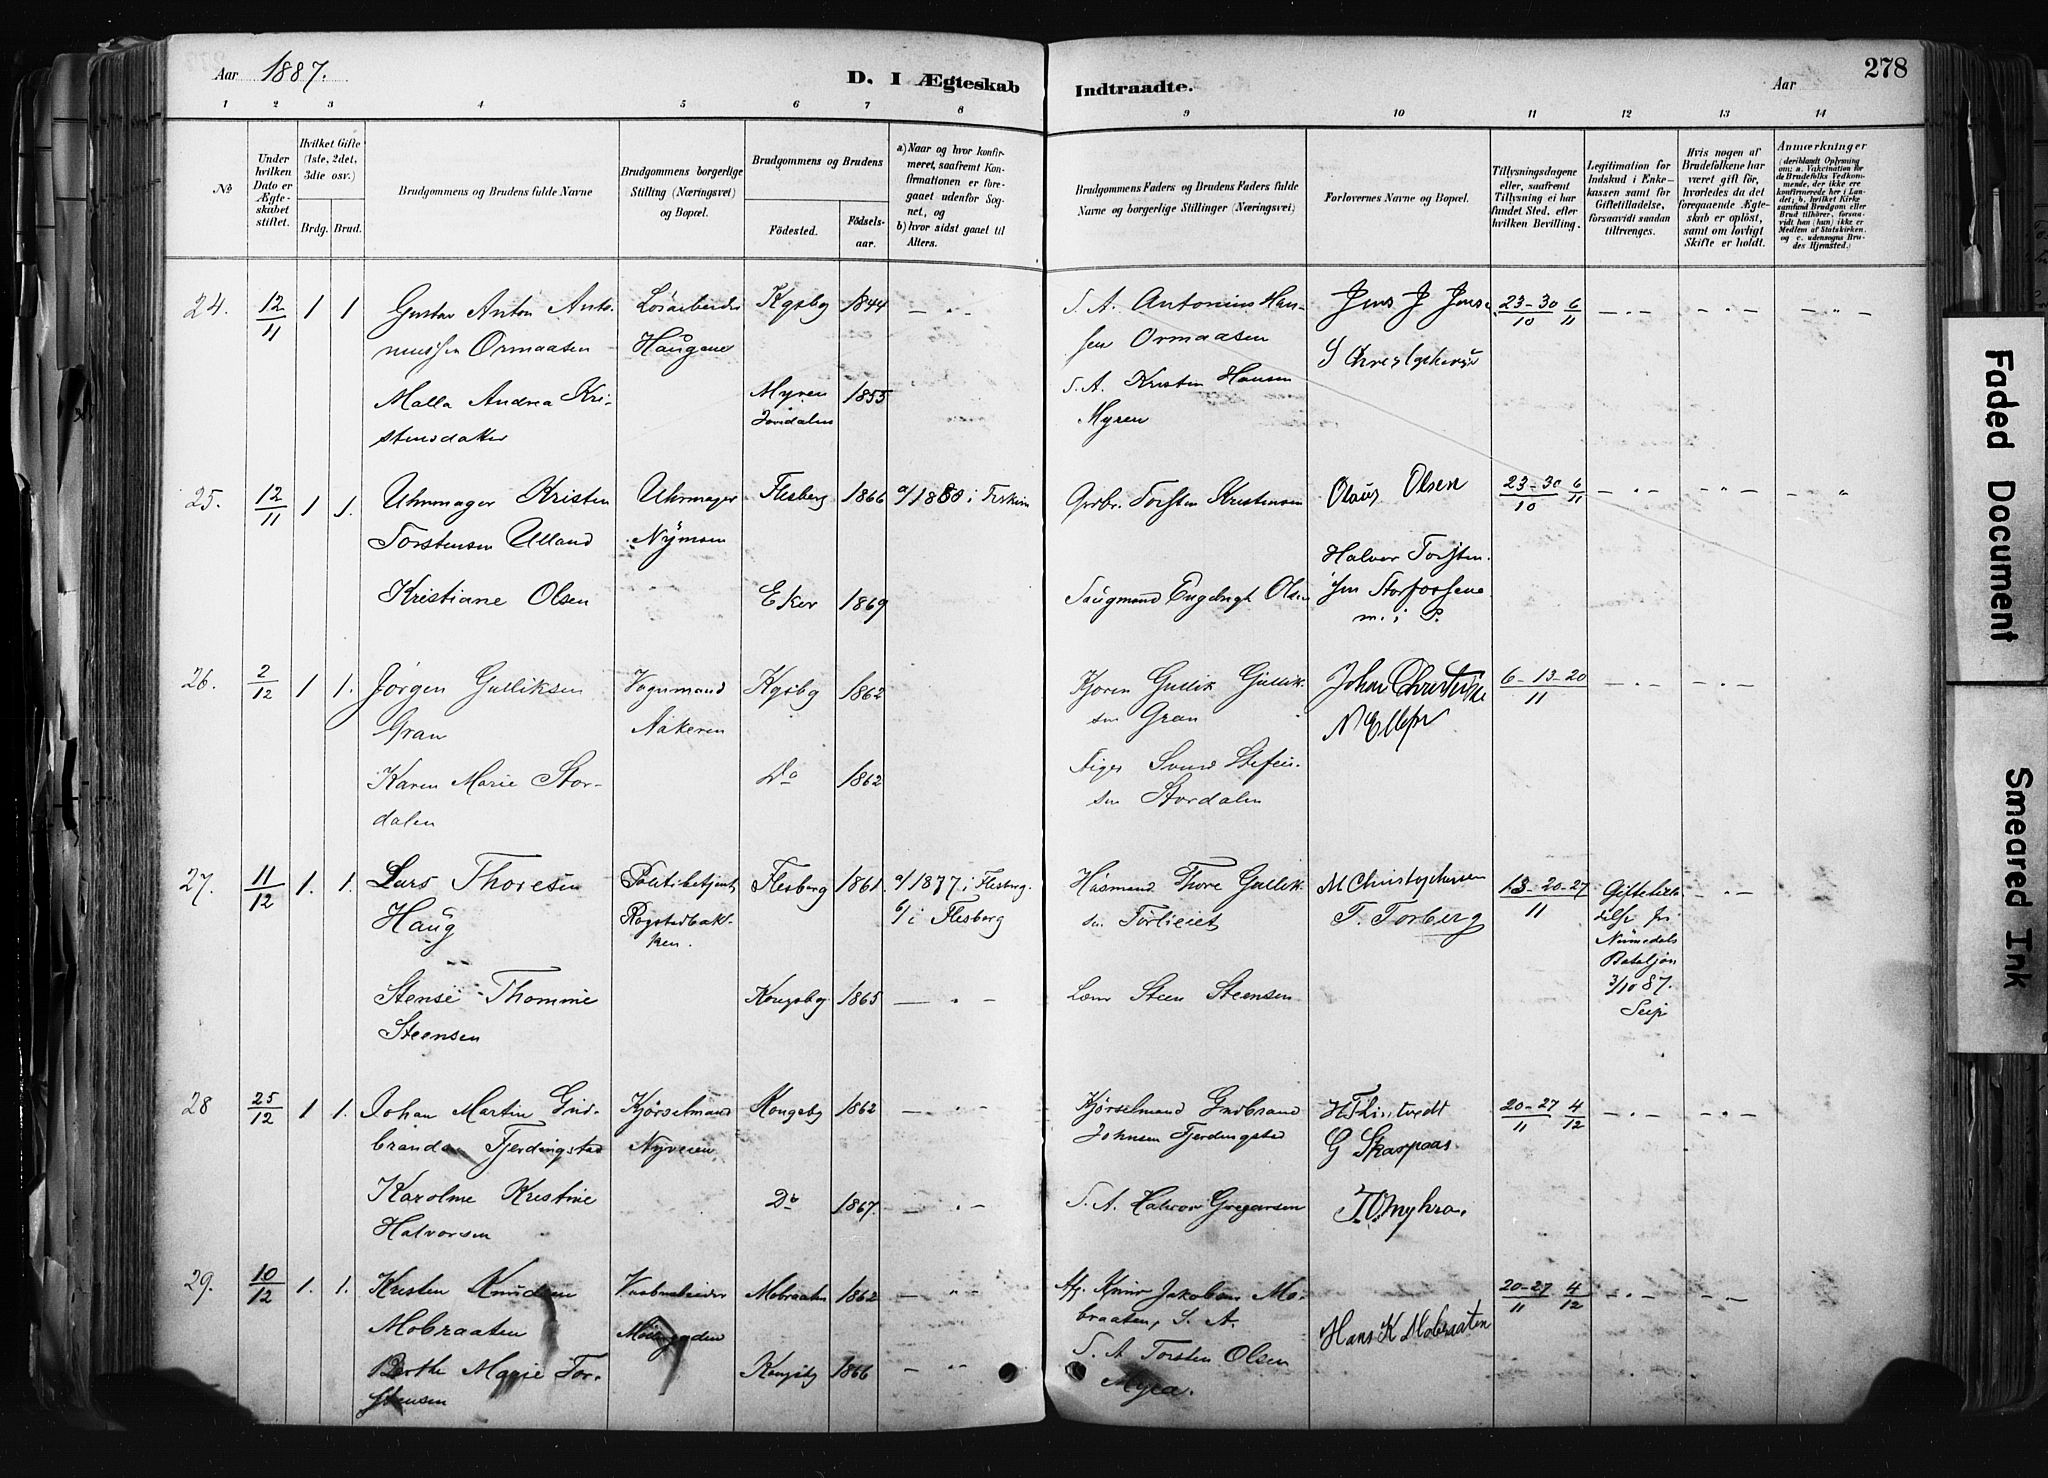 Aar 1887.
D. I Ægteskab
Indtraadte.
Aar
278
1 2 3 4 5 6 7 8 9 10 11 12 13 14
No
Under hvilken Dato er Ægteskabet stiftet.
Hvilket Gifte (1ste, 2det, 3die osv.)
Brdg. Brud.
Brudgommens og Brudens fulde Navne
Brudgommens borgerlige Stilling (Næringsvei) og Bopæl.
Brudgommens og Brudens
Födested.
Födselsaar.
a) Naar og hvor konfirmeret, saafremt Konfirmationen er foregaaet udenfor Sognet, og
b) hvor sidst gaaet til Alters.
Brudgommens Faders og Brudens Faders fulde Navne og borgerlige Stillinger (Næringsvei)
Forlovernes Navne og Bopæl.
Tillysningsdagene eller, saafremt Tillysning ei har fundet Sted, efter hvilken Bevilling.
Legitimation for Indskud i Enkekassen samt for Giftetilladelse, forsaavidt saadan tiltrænges.
Hvis nogen af Brudefolkene har været gift før, hvorledes da det foregaaende Ægteskab er oplöst, samt om lovligt Skifte er holdt.
Anmærkninger
(deriblandt Oplysning om: a. Vakcination for de Brudefolks Vedkommende, der ikke ere konfirmerede her i Landet; b. hvilket Kirkesamfund Brudgom eller Brud tilhörer, forsaavidt han (hun) ikke er Medlem af Statskirken, og c. udensogns Brudes Hjemsted.)
24. 12/11 1 1 Gustav Anton Anto- Kgsby 1844 S. A. Antonius Han- Jens J Jens 23-30/10 6/11
Ormaasen Haugene sen Ormaasen
Malla Andrea Kri- Myren 1855 S. A. Kristen Hansen
stensdatter Jondalen Myren
25. 12/11 1 1. Uhrmager Kristen Uhrmager Flesberg 1866 a/1880 i Torsten Kristensen Olaus Olsen 23-30/10 6/11
Torstensen Ulland Nymoen Halvor Torsten-
Kristiane Olsen Eker 1869 Engebrigt Olsen sen
26. 2/12 1 1. Jörgen Gulliksen Kgsby 1862 Gullik Gullik- Johan 6-13-20/11
Gran Aakeren sen Gran
Karen Marie Stor- Do 1862 Svend
dalen sen Stordalen
27. 11/12 1. 1. Lars Thoresen Politibetjent Flesberg 1861. a/1877 i Flesberg. Husmand Thore Gullik- M Christophersen 13-20-27/11
Haug b/i Flesberg sen T. Torberg
Numedals
Bataljon
3/10 87.
Seip
Thomine Kongsbg 1865 Steen Steensen
Steensen
28 25/12 1 1. Johan Martin Gud- Kjörselmand Kongsby 1862 Kjörselmand Gudbrand 20-27/11 4/12
brandsen Fjerdingstad Nyveien Johnsen Fjerdingstad G Skarpaas
Karoline Kristine Do 1867. S. A. Halvor Gregersen T. O. Myhra.
Halvorsen
29. 10/12 1. 1. Kristen Knudsen Mobraaten 1862 Jakobsen Mo- 20-27/11 4/12
Mobraaten braaten, S. A. Hans K Mobraaten
Berthe Marie Tor- Kongsbg 1866 S. A Torsten Olsen
stensen Myra.
Faded Document
Smeared Ink